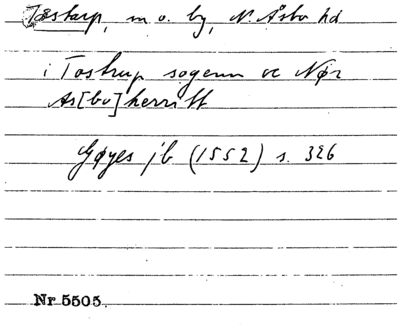 Tåstarp, m o. by, N. Åsbo hd
i Tostrup sogenn oc Nør
As[bo]herritt
Gøyes jb (1552) s. 326
Nr 5505.